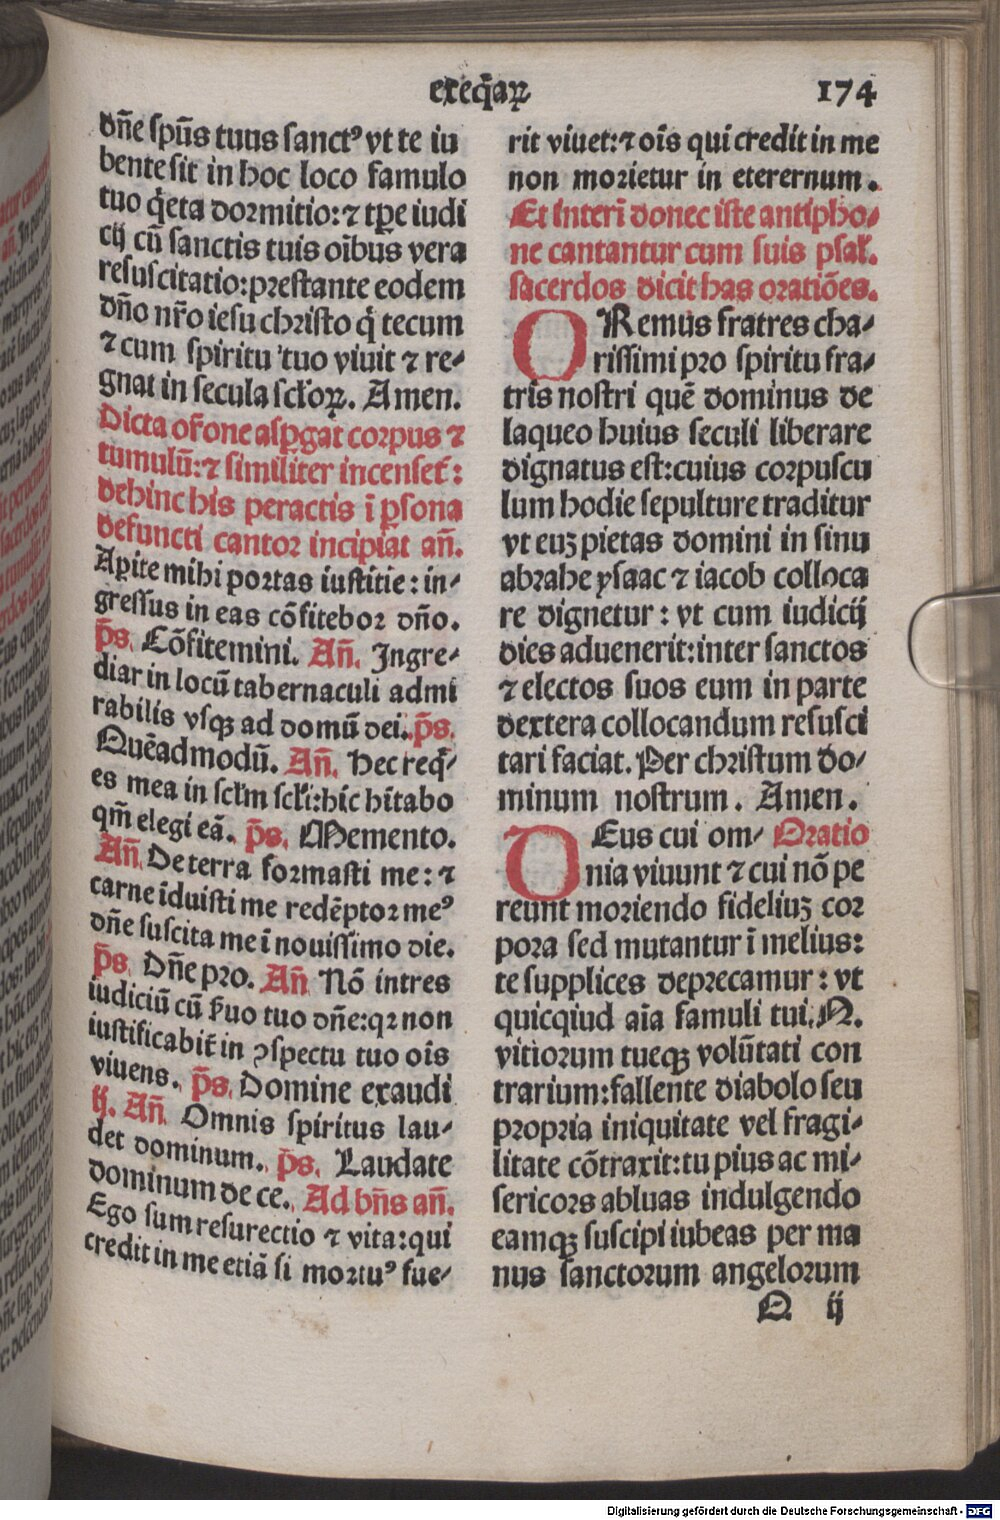 exeq̄aꝝ 174
dn̄e spūs tuus sanctꝰ vt te iu
bente sit in hoc loco famulo
tuo q̄eta dormitio: ⁊ tꝑe iudi
cij cū sanctis tuis oībus vera
resuscitatio: prestante eodem
dn̄o nr̄o iesu christo q̄ tecum
⁊ cum spiritu tuo viuit ⁊ re⸗
gnat in secula scl̓oꝝ. Amen.
Dicta or̄one aspꝑgat corpus ⁊
tumulū: ⁊ similiter incenset̄:
dehinc his peractis ī ꝑsona
defuncti cantor incipiat an̄.
Aꝑite mihi portas iustitie: in⸗
gressus in eas cōfitebor dn̄o.
p̄s. Cōfitemini. An̄. Ingre⸗
diar in locū tabernaculi admi
rabilis vsqꝫ ad domū dei. p̄s.
Quēadmodū. An̄. Hec req̄⸗
es mea in scl̓m scl̓i: hic hītabo
qm̄ elegi eā. p̄s. Memento.
An̄. De terra formasti me: ⁊
carne īduisti me redēptor meꝰ
dn̄e suscita me ī nouissimo die.
p̄s. Dn̄e pro. An̄ Nō intres
iudiciū cū s̄uo tuo dn̄e: qꝛ non
iustificabit̄ in ꝯspectu tuo oīs
viuens. p̄s. Domine exaudi
ij. An̄. Omnis spiritus lau⸗
det dominum. p̄s. Laudate
dominum de ce. Ad bn̄s an̄.
Ego sum resurectio ⁊ vita: qui
credit in me etiā si mortuꝰ fue⸗
rit viuet: ⁊ oīs qui credit in me
non morietur in eterernum.
Et interī donec iste antipho⸗
ne cantantur cum suis psal̄.
sacerdos dicit has oratiōes.
ORemus fratres cha⸗
rissimi pro spiritu fra⸗
tris nostri quē dominus de
laqueo huius seculi liberare
dignatus est: cuius corpuscu
lum hodie sepulture traditur
vt euꝫ pietas domini in sinu
abrahe ysaac ⁊ iacob colloca
re dignetur: vt cum iudicij
dies aduenerit: inter sanctos
⁊ electos suos eum in parte
dextera collocandum resusci
tari faciat. Per christum do⸗
minum nostrum. Amen.
DEus cui om⸗ Oratio
nia viuunt ⁊ cui nō pe
reunt moriendo fideliuꝫ cor
pora sed mutantur ī melius:
te supplices deprecamur: vt
quicqiud aīa famuli tui. N.
vitiorum tueqꝫ volūtati con
trarium: fallente diabolo seu
propria iniquitate vel fragi⸗
litate cōtraxit: tu pius ac mi⸗
sericors abluas indulgendo
eamqꝫ suscipi iubeas per ma
nus sanctorum angelorum
Q ij
Digitalisierung gefördert durch die Deutsche Forschungsgemeinschaft - DFG